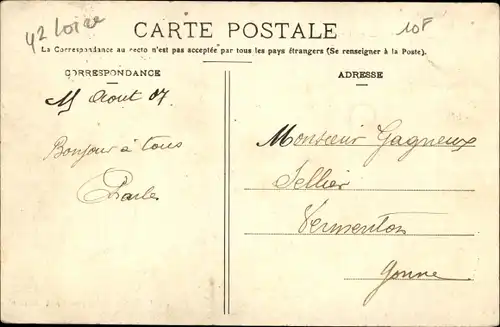 42 Loire
10F
CARTE POSTALE
La Correspondance au recto n'est pas acceptée par tous les pays étrangers (Se renseigner à la Poste).
CORRESPONDANCE
15 Aout 07
Bonjour à tous
Charles
ADRESSE
Monsieur Gagneux
Sellier
Vermenton
Yonne